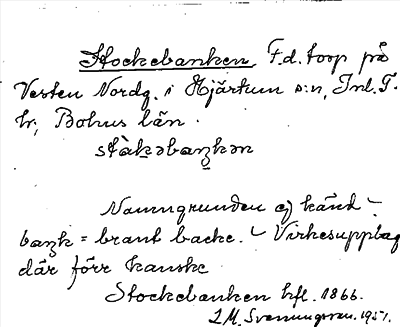 Stockebanken F.d. torp på
Vesten Nordg. i Hjärtum s:n, Inl. T.
hr, Bohus län.
ståkəbaŋkən
Namngrunden ej känd –
baŋk = brant backe. – Virkesupplag
där förr kanske
Stockebanken hfl. 1866.
I.M. Svenungsson. 1951.